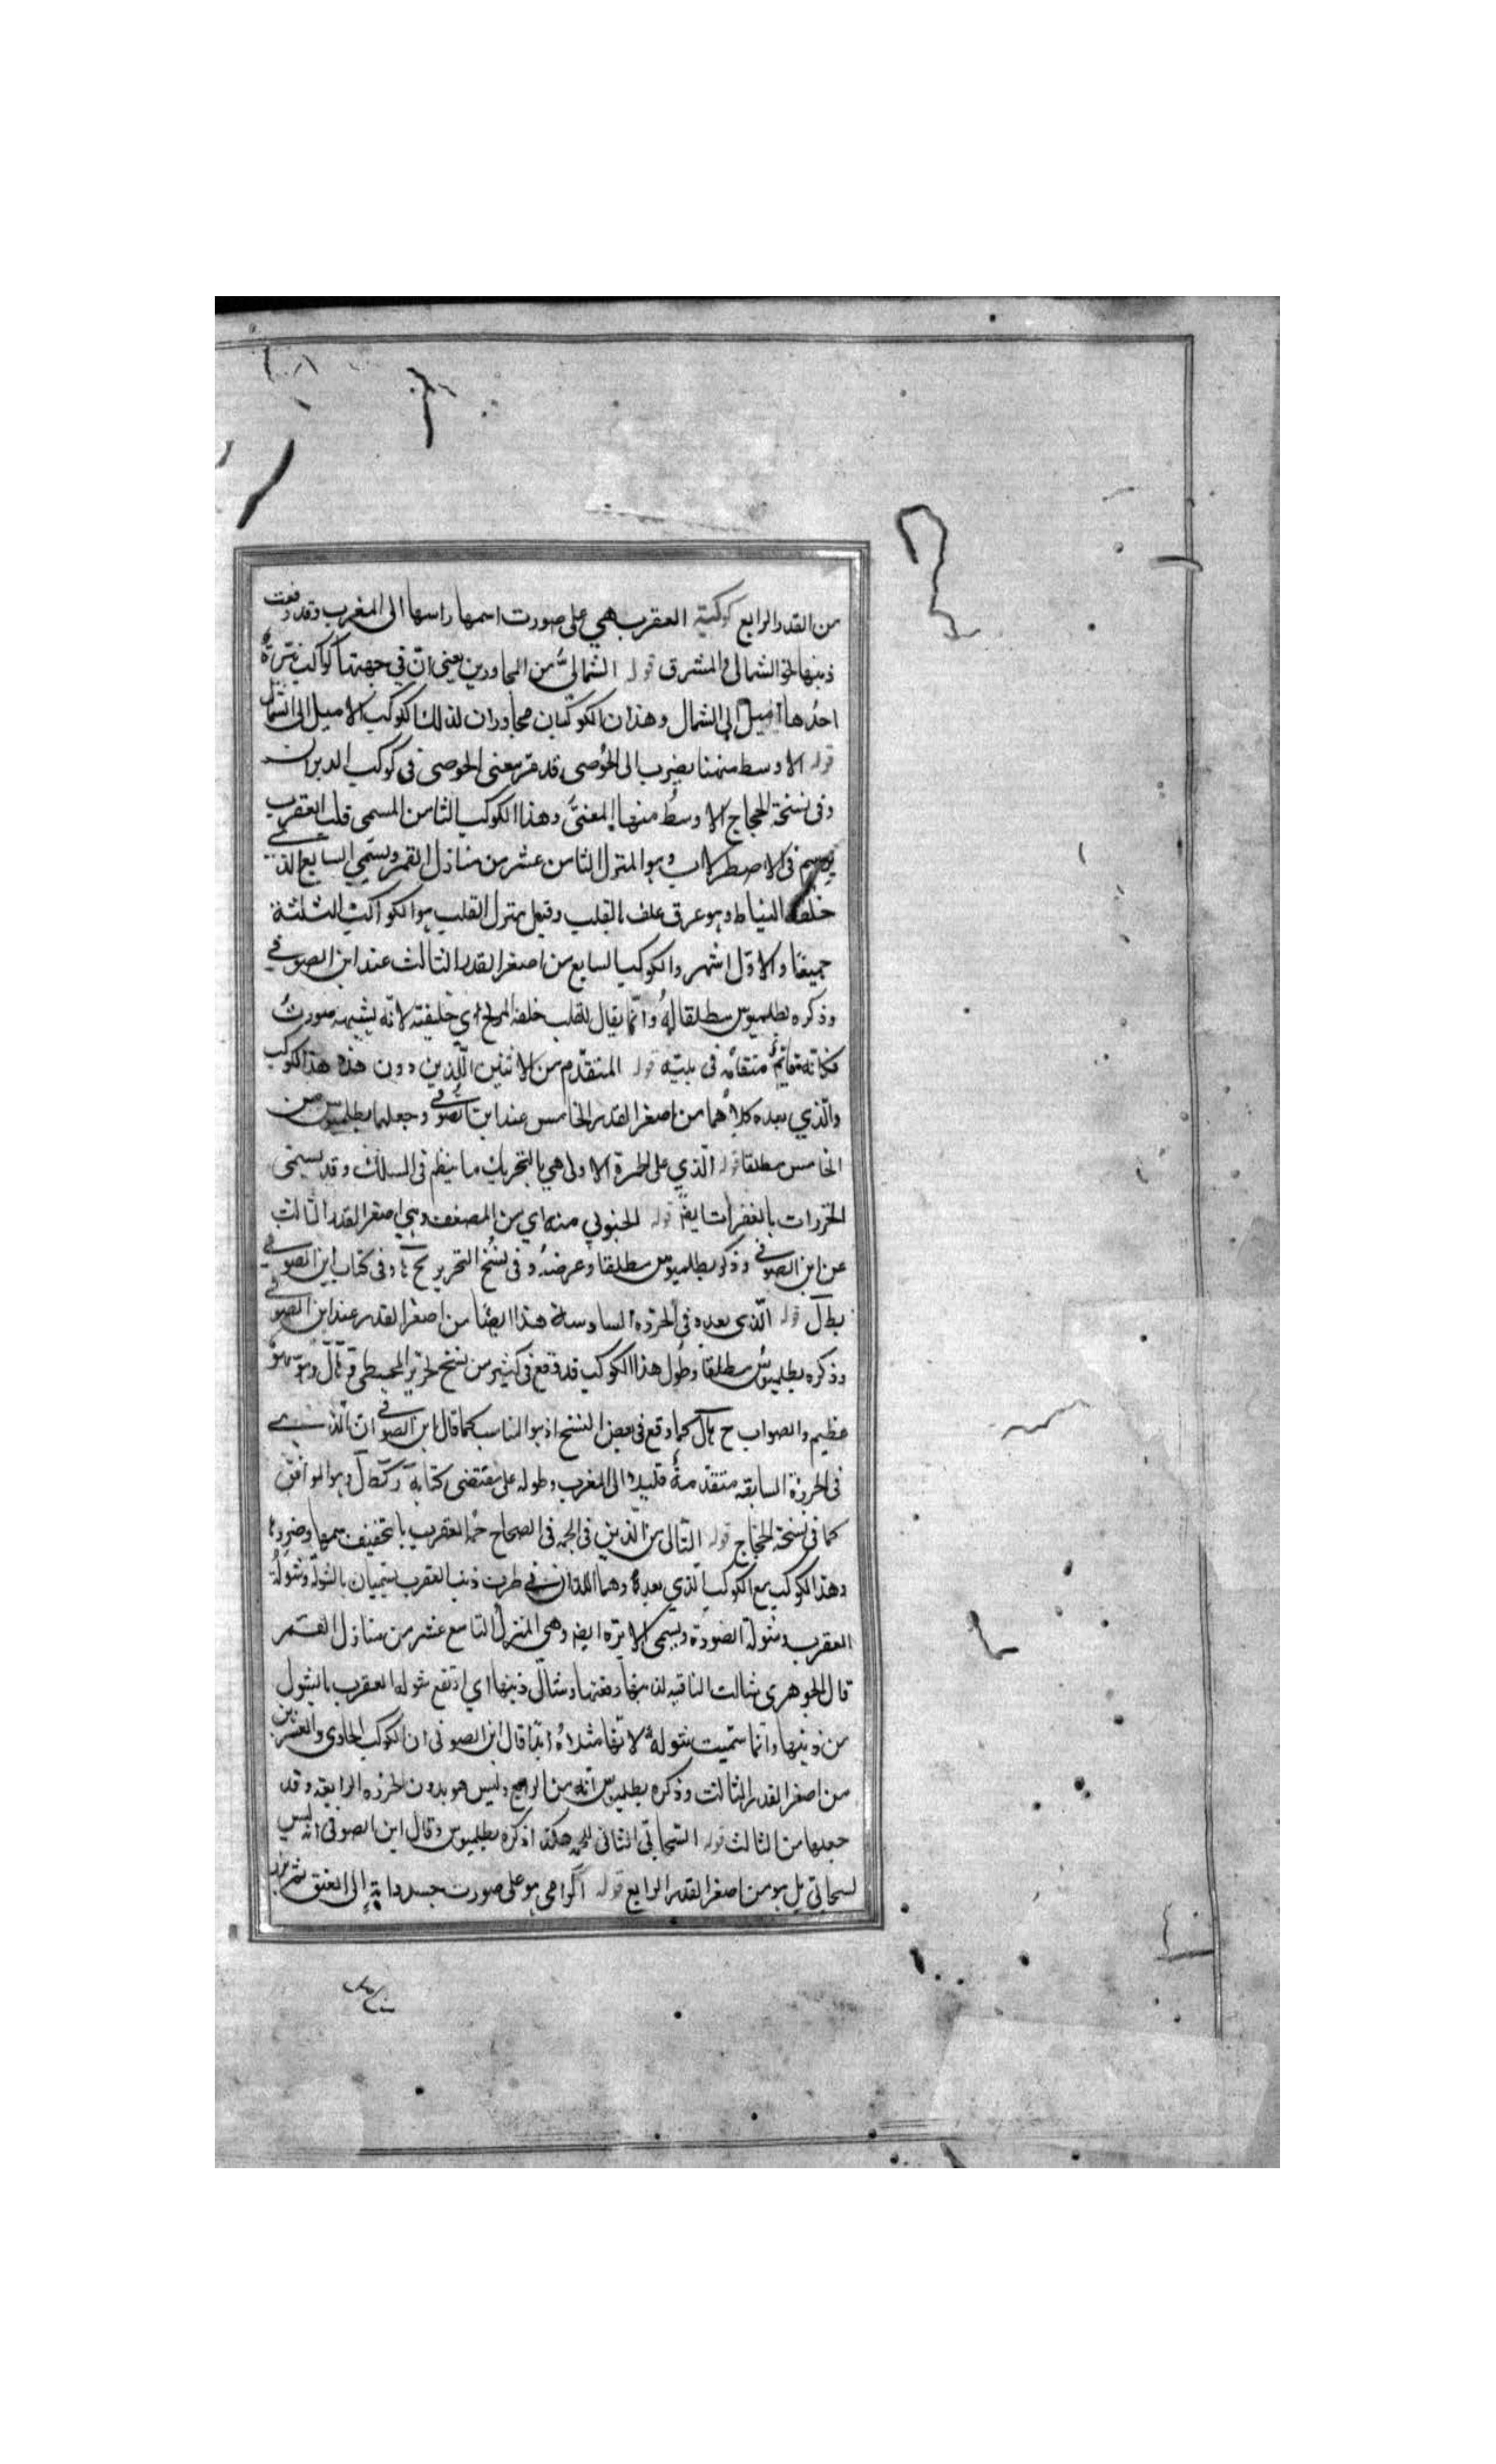 من القدر الرابع كوكبة العقرب هي على صورت اسمها راسها الى المغرب وقد رفعت
ذنبها نحو الشمال والمشرق قوله الشمالى من المجاورين يعنى ان في جهتها كواكب نيرة
احدها اميل الى الشمال وهذان الكوكبان مجاوران لذلك الكوكب الاميل الى الشمال
قوله الاوسط منهنا يضرب الى الخوصى قد مر معنى الخوصى فى كوكب الدبران
وفى نسخة الحجاج الاوسط منها المعنى وهذا الكوكب الثامن المسمى قلب العقرب
يرسم فى الاصطرلاب وهو المنزل الثامن عشر من منازل القمر ويسمى السابع الذى
خلفه النياط وهو عرق علف بالقلب وقيل منزل القلب هو الكواكب الثلثة
جميعا والاول اشهر والكوكب السابع من اصغر القدر الثالث عند ابن الصوفي
وذكره بطلميوس مطلقا له وانما يقال للقلب خلفة المريخ اي خليفته لانه يشبهه صورت
فكانه قايم مقامه فى بيته قوله المتقدم من الاثنين اللذين دون هذه هذا الكوكب
والذي بعده كلاهما من اصغر القدر الخامس عند ابن الصوفي وجعلهما بطلميوس من
الخامس مطلقا قوله الذي على الخرزة الاولى هي بالتحريك ما ينظم فى السلك وقد يسمى
الخرزات بالفقرات ايضا قوله الجنوبي منه اي من المضعف وهي اصغر القدر الثالث
عن ابن الصوفي وذكر بطلميوس مطلقا وعرضه وفى نسخ التحرير وفى كتاب ابن الصوفي
يطآل قوله الذى بعده في الخرزه السادسة هذا ايضا من اصغر القدر عند ابن الصوفي
وذكره بطلميوس مطلقا وطول هذا الكوكب قد وقع فى كثير من نسخ تحرير المجسطي وهو سهو
عظيم والصواب ح كما وقع فى بعض النسخ اذ هو المناسب كما قال ابن الصوفي ان الذى
فى الخرزة السابقه متقدمة قليلا الى المغرب وطوله على مقتضى كتابه وهو الموافق
كما فى نسخة الحجاج قوله التالى من الذين فى الحمة فى الصحاح حمة العقرب بالتخفيف سمها وضرها
وهذا الكوكب مع الكوكب الذي بعده وهما اللذان في طرف ذنب العقرب يسميان بالشولة وشولة
العقرب وشولة الصورة ويسمى الابرة ايضا وهى المنزل التاسع عشر من منازل القمر
قال الجوهرى شالت الناقة لذنبها رفعتها وشال ذنبها اي ارتفع شولة العقرب ما يشول
من ذنبها وانما سميت شولة لانها مثلاه ابدا قال ابن الصوفى ان الكوكب الحادى والعشرين
من اصغر القدر الثالث وذكره بطلميوس انه من الرابع وليس هو بدون الخرزه الرابعة وقد
جعلها من الثالث قوله السحابى الثانى للحمة هكذا ذكره بطلميوس وقال ابن الصوفى انه ليس
بسحابي بل هو من اصغر القدر الرابع قوله الرامى هو على صورت جسد دابة الى العنق